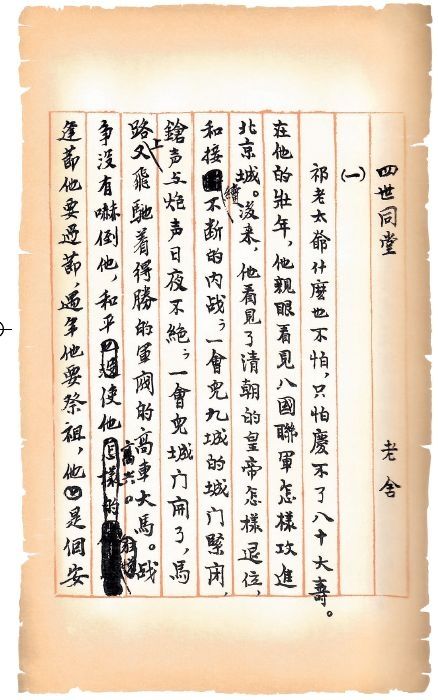 四世同堂　老舍
(一)
祁老太爺什麼也不怕，只怕慶不了八十大壽。
在他的壯年，他親眼看見八國聯軍怎樣攻進
北京城。後来，他看見了清朝的皇帝怎樣退位，
和接續不断的内战；一會兒九城的城门緊闭，
鎗声与炮声日夜不絶；一會兒城门開了，馬
路上又飛馳着得勝的軍閥的高車大馬。战
争沒有嚇倒他，和平使他高兴。
逢節他要過節，過年他要祭祖，他是個安